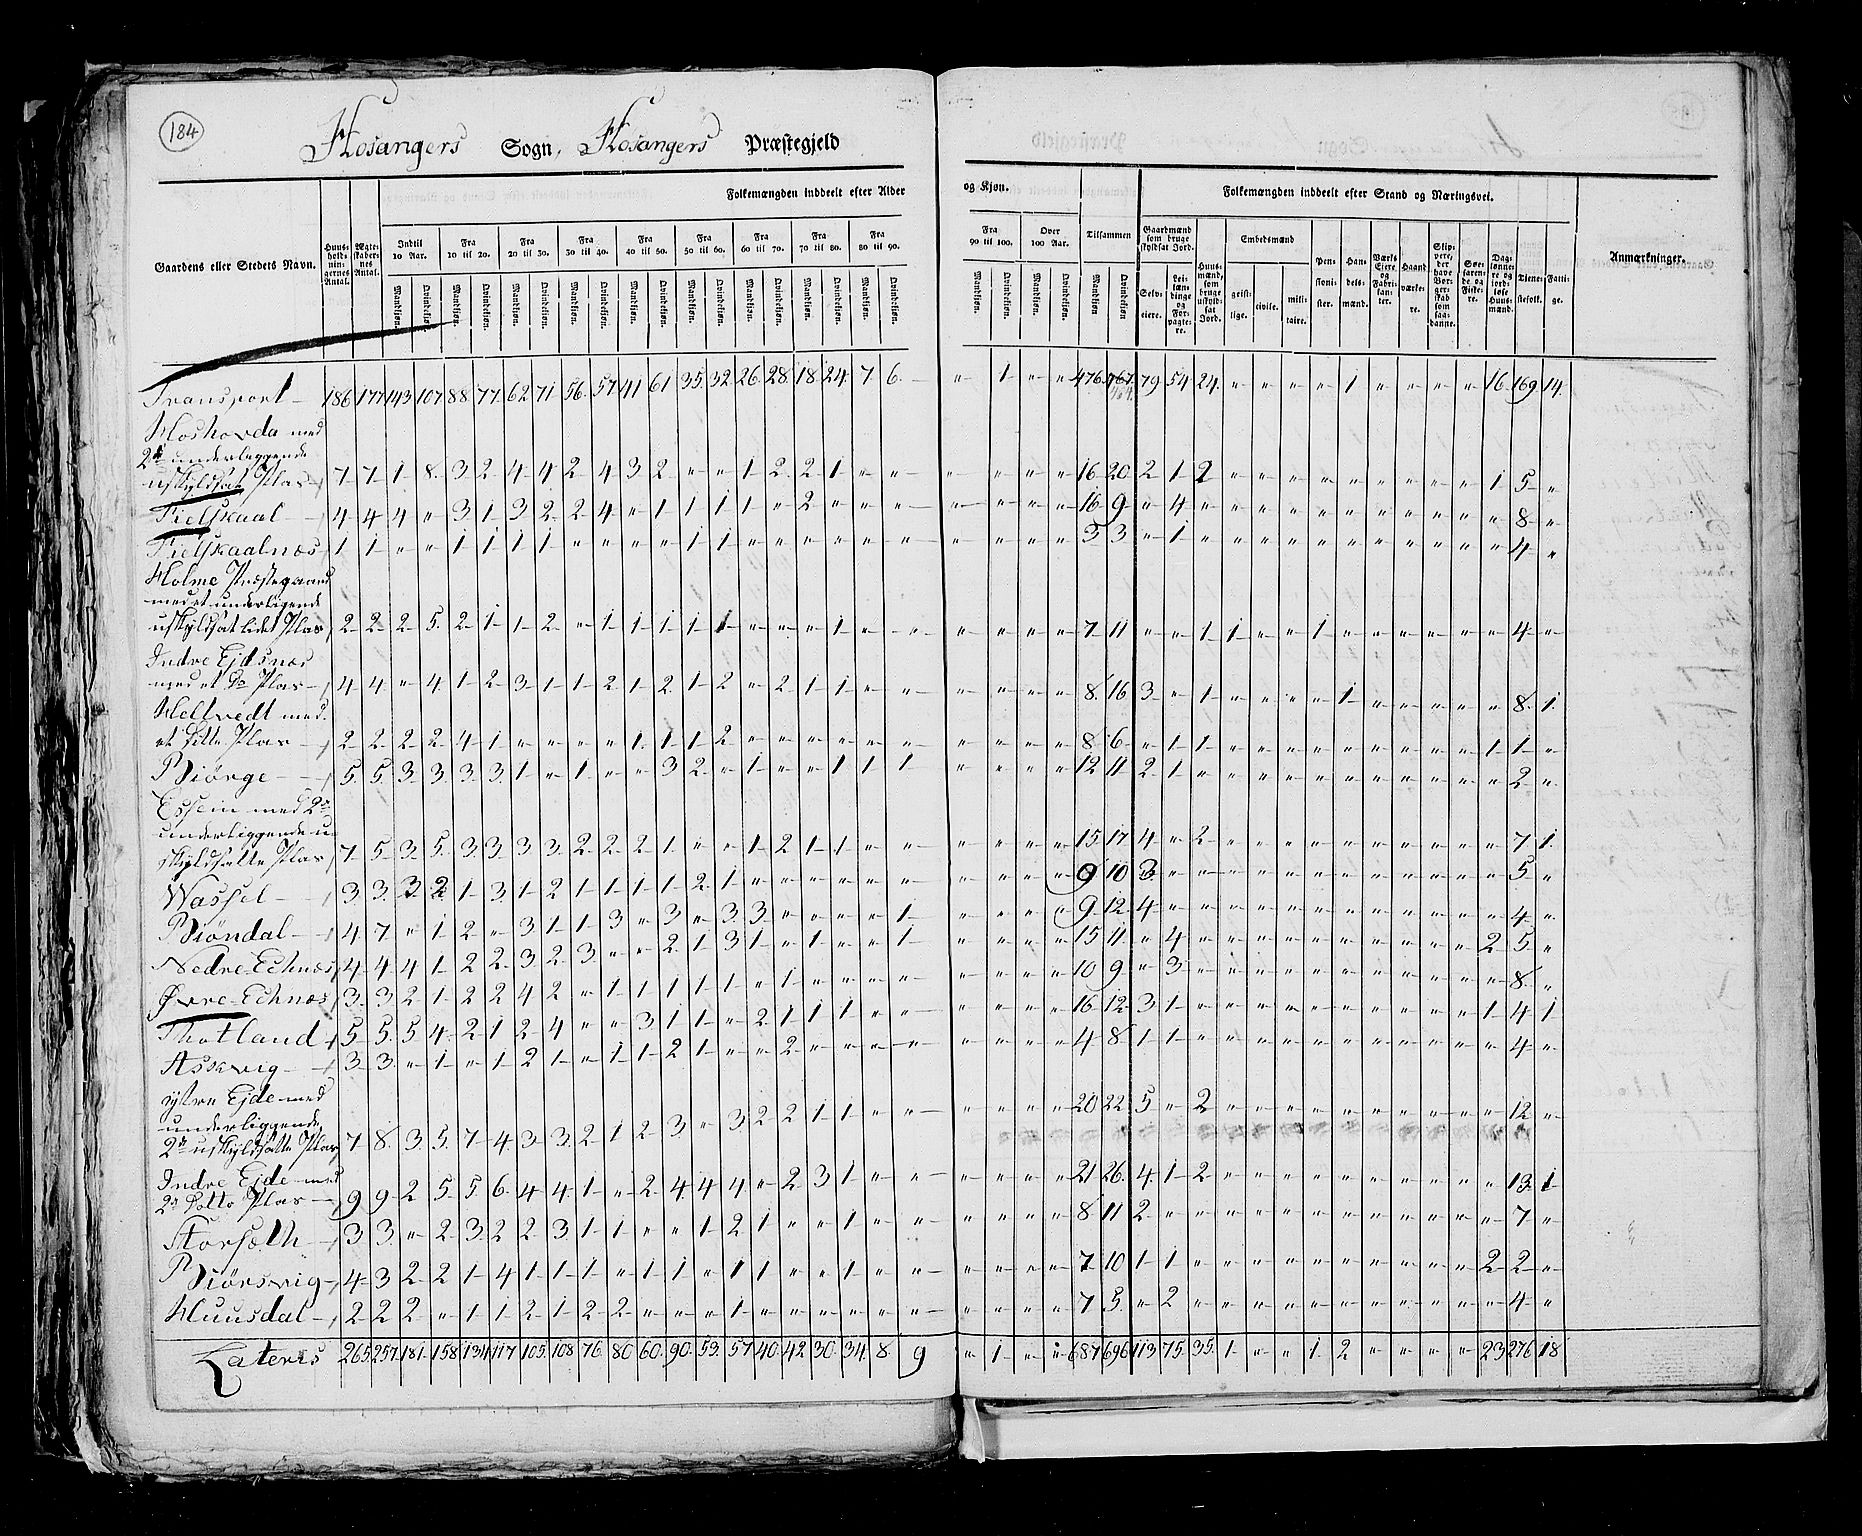 184
Hosangers Sogn, Hosangers Præstegjeld
Gaardens eller Stedets Navn.
Huus-holdningernes Antal.
Ægteskabernes Antal.
Folkemængden inddeelt efter Alder og Kjøn.
Indtil 10 Aar.
Fra 10 til 20.
Fra 20 til 30.
Fra 30 til 40.
Fra 40 til 50.
Fra 50 til 60.
Fra 60 til 70.
Fra 70 til 80.
Fra 80 til 90.
Fra 90 til 100.
Over 100 Aar.
Tilsammen
Mandkjøn. Qvindekjøn.
Folkemængden inddeelt efter Stand og Næringsvei.
Gaardmænd som bruge skyldsat Jord.
Selveiere.
Leilændinge og Forpagtere.
Huusmænd, som bruge uskyldsat Jord.
Embedsmænd
geistlige. civile. militaire.
Pensionister.
Handelsmænd.
Værks Eiere og Fabrikanter.
Haandværkere.
Skippere, der have Borgerskab som saadanne.
Søefarende og Fiskere.
Daglønnere og jordløse Huusmænd.
Tienestefolk.
Fattige.
Anmærkninger.
Transport 186 177 143 107 88 77 62 71 56 57 41 61 35 32 26 28 18 24 7 6 " 1 " " 476 767 79 54 24 " " " " 1 " " " " 16 169 14
Hoshovda med
2de underliggende
uskyldsat Plas 7 7 1 8 3 2 4 4 2 4 3 2 " " 1 2 2 1 " " " " " " 16 20 2 1 2 " " " " " " " " " 1 5 "
Fielskaal 4 4 4 " 3 1 3 2 2 4 " 1 1 1 1 " 2 " " " " " " " 16 9 " 4 " " " " " " " " " " " 8 "
Fielskaalnæs 1 1 " " 1 1 1 1 " " " " 1 1 " " " " " " " " " " 3 3 " 1 " " " " " " " " " " " 4 "
Holme Præstegaard
med et underligende
uskyldsat lidet Plas 2 2 2 5 2 1 1 2 " 1 1 1 1 1 " " " 1 " " " " " " 7 11 " " 1 1 " " 1 " " " " " " 4 "
Indre Ejdsnæs
med et Do Plas 4 4 " 4 1 2 3 1 1 2 1 2 1 2 " 2 1 1 " " " " " " 8 16 3 " 1 " " " " 1 " " " " " 8 1
Hellvedt med
et Ditto Plas 2 2 2 2 4 1 " " " " 1 1 1 2 " " " " " " " " " " 8 6 " 1 1 " " " " " " " " " 1 1 "
Biørge 5 5 3 3 3 3 1 " 1 " " 3 2 " 1 " " 1 1 1 " " " " 12 11 2 1 " " " " " " " " " " " 2 "
Essem med 2de
underliggende u-
skyldsatte Plas 7 5 3 5 3 3 3 3 2 2 2 1 " " 1 2 1 1 " " " " " " 15 17 4 " 2 " " " " " " " " " " 7 1
Wassel 3 3 3 2 1 3 1 2 1 1 1 1 2 1 " " " " " " " " " " 9 10 3 " " " " " " " " " " " " 5 "
Biøndal 4 7 " 1 2 " 3 1 1 3 " 3 " 3 3 " " " " 1 " " " " 9 12 4 " " " " " " " " " " " " 4 "
Nedre Echnæs 4 4 4 1 2 2 3 2 3 " " 2 1 3 1 " 1 " " 1 " " " " 15 11 " 4 " " " " " " " " " " 2 5 "
Øvre Echnæs 3 3 2 1 2 2 4 2 " 1 1 1 1 1 " 1 " " " " " " " " 10 9 " 3 " " " " " " " " " " " 8 "
Thotland 5 5 5 4 2 1 2 4 " " 3 1 1 " 2 1 1 1 " " " " " " 16 12 3 1 " " " " " " " " " " 1 4 1
Asskvig 3 3 " 1 " 1 2 1 " 1 1 2 1 " " 2 " " " " " " " " 4 8 1 1 " " " " " " " " " " " 4 "
ijstre Ejde med
underliggende
2de uskyldsatte Plas 7 8 3 5 7 4 3 3 2 1 2 3 " 3 2 2 1 1 " " " " " " 20 22 5 " 2 " " " " " " " " " " 12 "
Indre Ejde med
2de Ditto Plas 9 9 2 5 5 6 4 4 1 " 2 4 4 4 " 2 3 1 " " " " " " 21 26 4 1 2 " " " " " " " " " " 13 1
Storsæth 3 3 " 2 3 2 2 3 1 1 " " 1 2 1 " " 1 " " " " " " 8 11 2 " " " " " " " " " " " " 7 "
Biørsvig 4 3 2 2 1 4 1 1 1 " 1 1 " 1 1 " " 1 " " " " " " 7 10 1 1 " " " " " " " " " " 2 2 "
Huusdal 2 2 2 " 1 1 2 1 2 2 " " " 1 " " " " " " " " " " 7 5 " 2 " " " " " " " " " " " 4 "
Lateris 265 257 181 158 134 117 105 108 76 80 60 90 53 57 40 42 30 34 8 9 " 1 " " 687 696 113 75 35 1 " " 1 2 " " " " 23 276 18